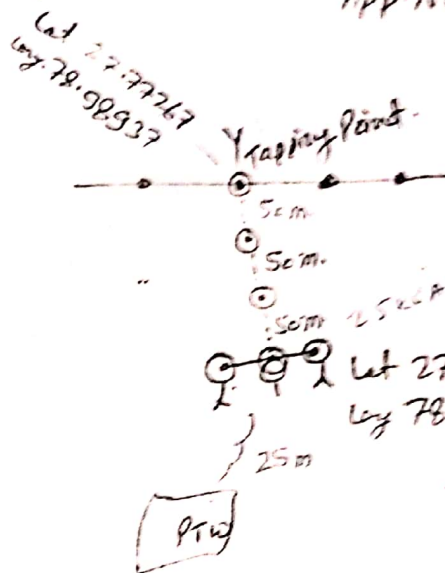 Lat 27.77267
Log. 78.98937
Tapping Point.
50m.
50m.
50m
25 KVA
Lat 27
Log 78
25m
PTW